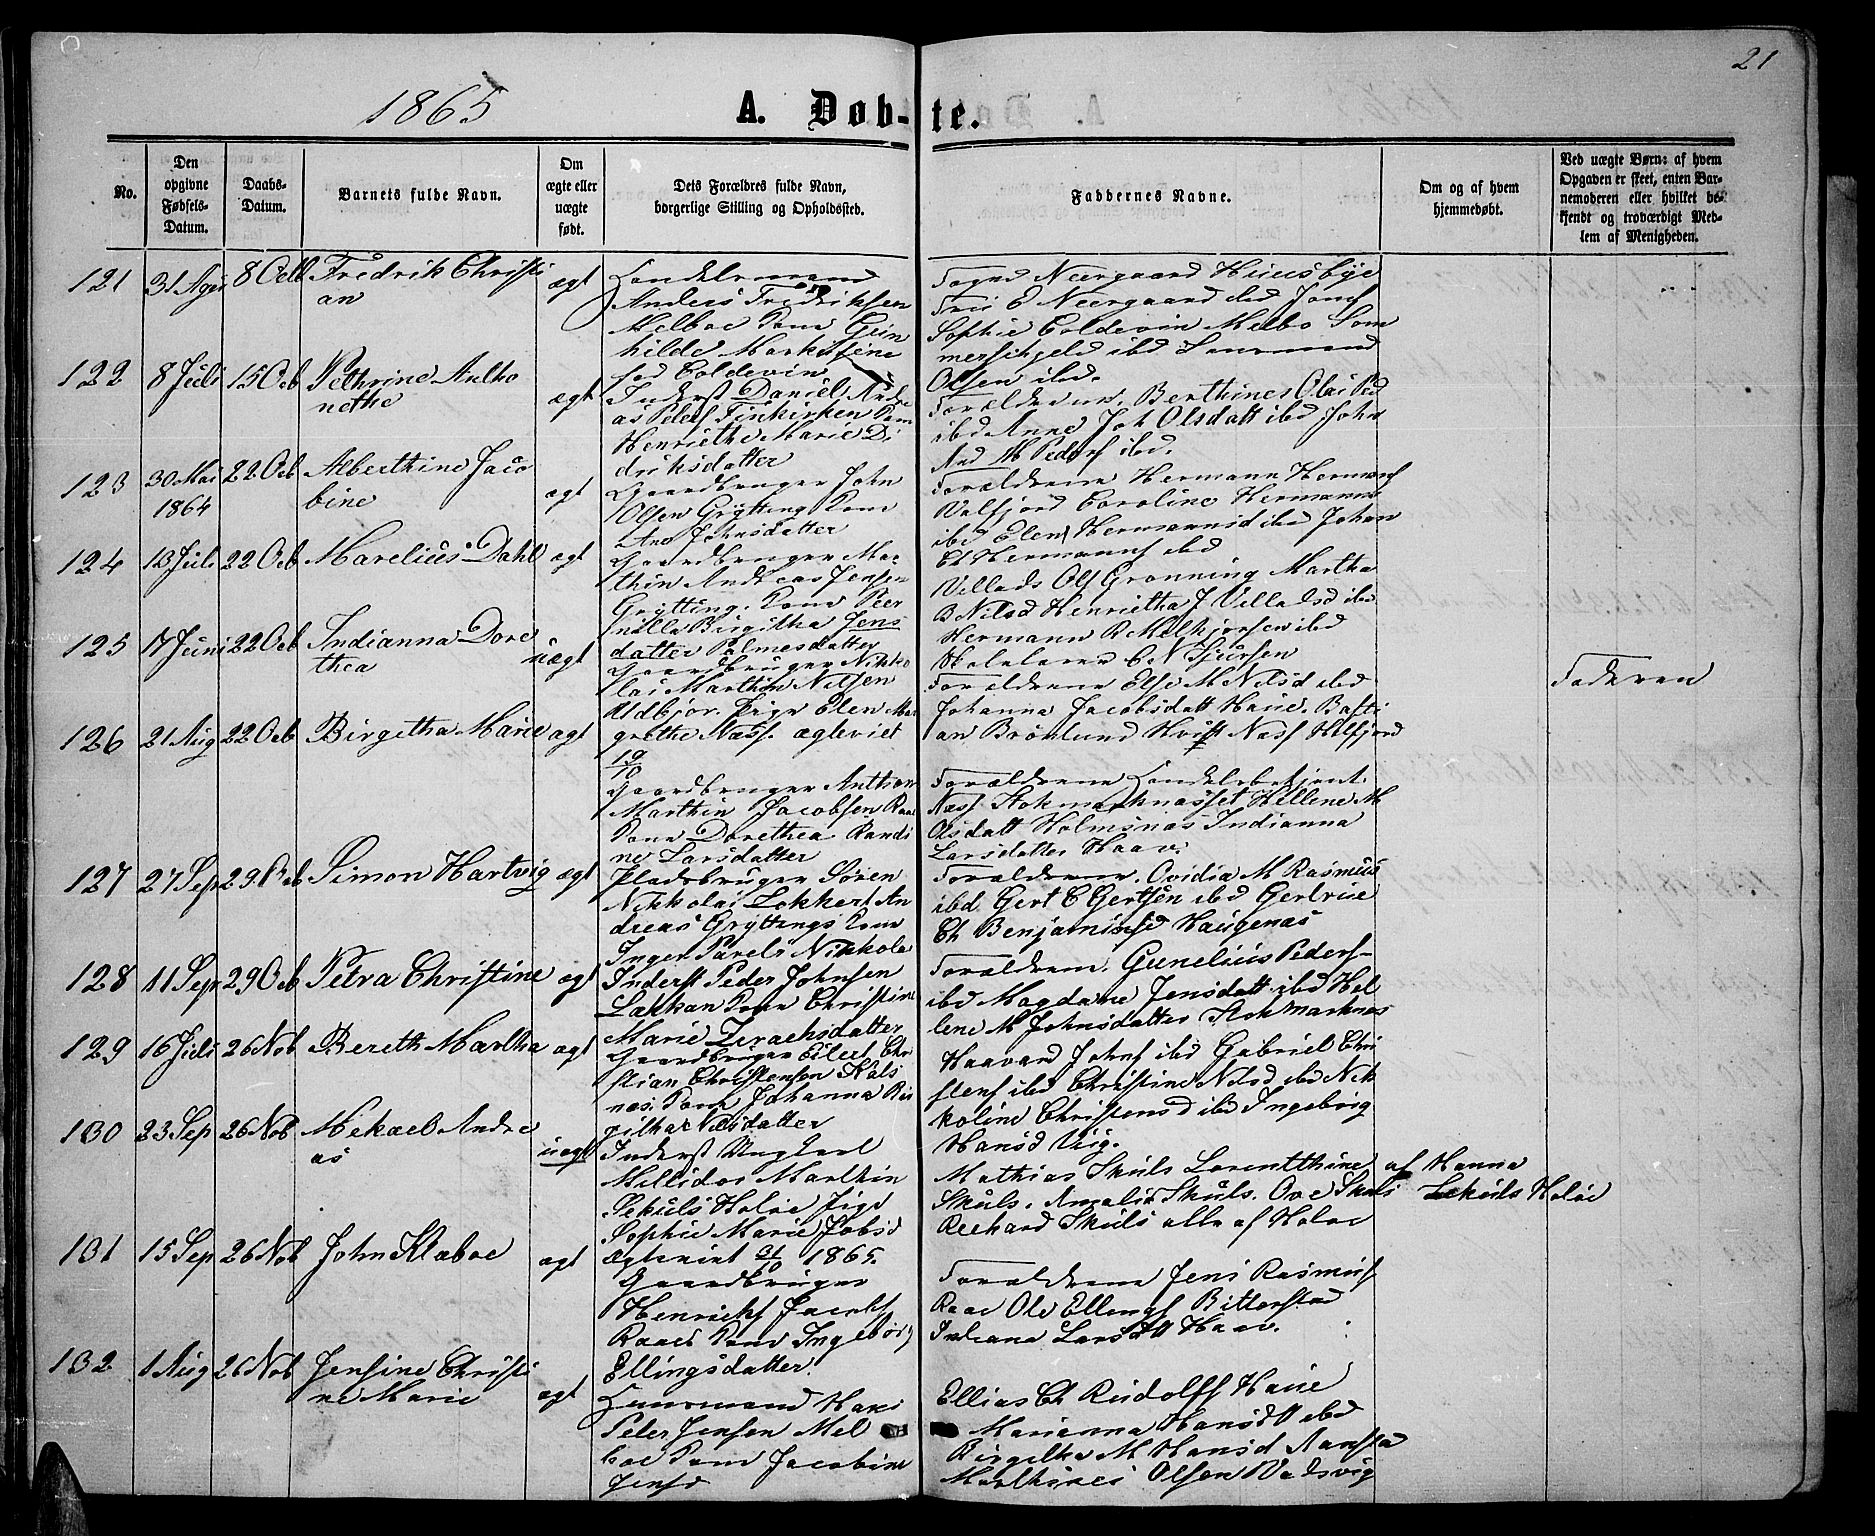 21
1865
A. Døb-te.
No.
Den opgivne Fødsels-Datum.
Daabs-Datum.
Barnets fulde Navn.
Om ægte eller uægte født.
Dets Forældres fulde Navn, borgerlige Stilling og Opholdssted.
Faddernes Navne.
Om og af hvem hjemmedøbt.
Ved uægte Børn: af hvem Opgaven er skeet, enten Barnemoderen eller hvilket bekjendt og troværdigt Medlem af Menigheden.
121 31 Agu 8 Octb Fredrik Christi
an
ægt
Handelsmand
Anders Fredriksen
Melboe Kone Gun
hilde Markusine
fød Coldevin
Neergaard Huusbye
E Neergaard ibd Jomf
Sophie Coldevin Melbo Som
merschjeld ibd
Olsen ibd.
122 8 Juli 15 Ocb Pethrine Antho
nethe
ægt
Inderst Daniel Andre
as Peders Finkirken Kone
Henriethe Marie Di
driksdatter
Forældrene. Berthines Olai Ped
ibd Anne Joh Olsdatt ibd John
And M Peders ibd.
123 30 Mai 1864 22 Ocb Alberthine Jaco
bine
ægt
Gaardbruger John
Olsen Grytting Kone
Ane Johnsdatter
Forældrene Hermann Hermans
Valfjord Caroline Hermanns
ibd Elen Hermannsd ibd Johan
Ch Hermanns ibd
124 13 Juli 22 Ocb Marelius Dahl ægt
Gaardbruger Mar
thin Andreas Jensen
Grytting. Kone Peer
nille Birgitha Jens
datter Palmesdatter
Villads Ols Grønning Martha
B Nilsd Henrietha J Villadsd ibd
Hermann B Melkjorsen ibd
C N Sjursen
125 17 Juni 22 Ocb Indianna Dore
thea
uægt
Gaardbruger Nikko
lai Marthin Nilsen
Udbjor. Pige Elen Mar
grethe Næss. ægteviet
19/10
Forældrene Else M Nilsd ibd
Johanna Jacobsdatt Haue. Basti
an Brønlund Kvist Næss Hilfjord
Faderen
126 21 Aug 22 Ocb Birgetha Marie ægt
Gaardbruger Anthon
Marthin Jacobsen Raae
Kone Dorethea Randi
ne Larsdatter
Forældrene Handelsbetjent
Næss Stokmarknæsset Hellene M
Olsdatt Holmsnæs Indianna
Larsdatter Haav.
127 27 Sep 29 Ocb Simon Hartvig ægt
Pladsbruger Søren
Nikkolai Lokkert An
dreas Gryttings Kone
Inger Parels Nikkola
Forældrene. Ovidia M Rasmus
ibd. Gert C Gertsen ibd Gertrue
Ch Benjaminsd Haugenæs
128 11 Sep 29 Ocb Petra Christine ægt
Inderst Peder Johnsen
Lakkan Kone Christine
Marie Zerachsdatter
Forældrene. Gunelius Peders-
ibd Magdane Jensdatt ibd Hel
lene M Johnsdatter Stokmarknæs
129 16 Juli 26 Nob Bereth Martha ægt
Gaardbruger Eilert Chr
stian Christensen Kals
næs. Kone Johanna Bir
githa Nilsdatter
Haavard Johns ibd Gabriel Chri
stens ibd Christine Nilsd ibd Nik
koline Christensd ibd Ingeborg
Hansd Vig.
130 23 Sep 26 Nob Mikael Andre
as
uægt
Inderst Ungkarl
Mellidor Marthin
Sekuls Holoe Pige
Sophie Marie Jakobsd
Ægteviet 31/10 1865.
Mathias Skuls Lorentthine
Skuls. Amalie Skuls. Ove Skuls
Reehard Skuls alle af Holoe
af Hanna
Sekuls Holoe
131 15 Sep 26 Nob John Klæboe ægt
Gaardbruger
Henrichs Jacobs
Raaes Kone Ingeborg
Ellingsdatter.
Forældrene Jens Rasmus
Raae Ole Ellings Bitterstad
Indiana Larsdtt Haav.
132 1 Aug 26 Nob Jensine Christi
ne Marie
ægt
Huusmand Hans
Peter Jensen Mel
boe Kone Jacobine
Jensd
Ellias Ch Rudolfs Haue
Marianna Hansdtt ibd
Birgetha M Hansd Ramsta
Marthines Olsen Vadsvig